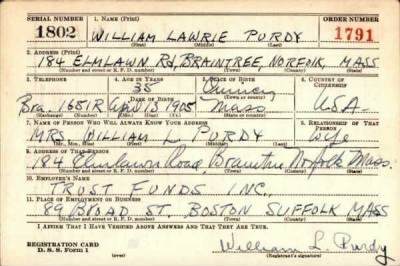 SERIAL NUMBER 1. NAME (Print) ORDER NUMBER
1802 WILLIAM LAWRIE PURDY 1791
(First) (Middle) (Last)
2. ADDRESS (Print)
184 ELMLAWN Rd, BRAINTREE, NORFOLK, MASS
(Number and street or R. F. D. number) (Town) (County) (State)
3. TELEPHONE 4. AGE IN YEARS 5. PLACE OF BIRTH 6. COUNTRY OF CITIZENSHIP
35 Quincy
(Town or county)
Bra. 1681R 13 1905 Mass USA
(Exchange) (Number) (Mo.) (Day) (Yr.) (State or country)
7. NAME OF PERSON WHO WILL ALWAYS KNOW YOUR ADDRESS 8. RELATIONSHIP OF THAT PERSON
MRS. WILLIAM L PURDY wife
(Mr., Mrs., Miss) (First) (Middle) (Last)
9. ADDRESS OF THAT PERSON
184 Elmlawn Road, Braintree Norfolk Mass.
(Number and street or R. F. D. number) (Town) (County) (State)
10. EMPLOYER'S NAME
TRUST FUNDS INC.,
11. PLACE OF EMPLOYMENT OR BUSINESS
89 BROAD ST. BOSTON SUFFOLK MASS
(Number and street or R. F. D. number) (Town) (County) (State)
I AFFIRM THAT I HAVE VERIFIED ABOVE ANSWERS AND THAT THEY ARE TRUE.
REGISTRATION CARD
D. S. S. Form 1
William L. Purdy
(Registrant's signature)